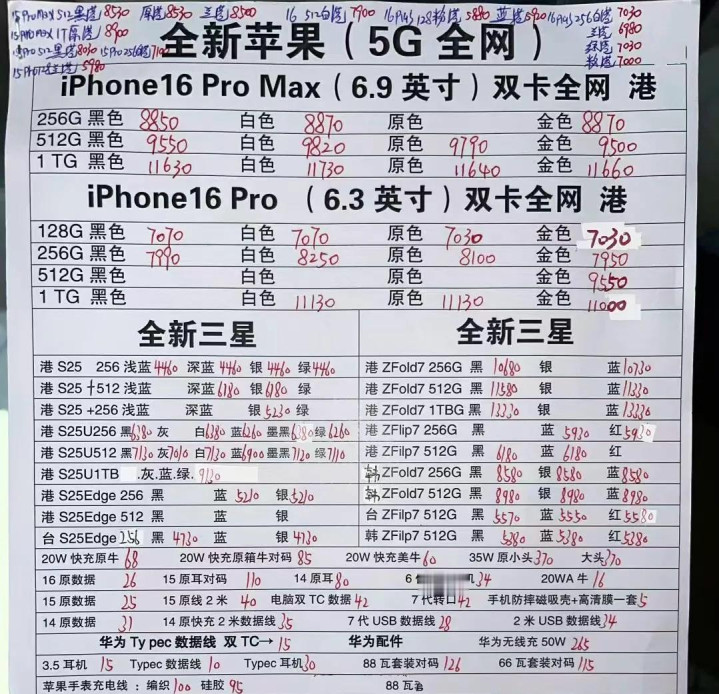 15ProMax 512黑港8530 原港8530 兰港8500 16 512白港7900 16Plus 128粉港5880 蓝港5920 16Plus 256白港7030
15ProMax 1T原港8900 兰港6980
15Pro 512黑港8030 15Pro 256 绿港7030
兰港5980 粉港7000
全新苹果（5G 全网）
iPhone16 Pro Max（6.9 英寸）双卡全网 港
256G 黑色 8850 白色 8870 原色 金色 8870
512G 黑色 9550 白色 9820 原色 9790 金色 9500
1 TG 黑色 11630 白色 11730 原色 11640 金色 11660
iPhone16 Pro （6.3 英寸）双卡全网 港
128G 黑色 7070 白色 7070 原色 7030 金色 7030
256G 黑色 7990 白色 8250 原色 8100 金色 7950
512G 黑色 白色 原色 金色 9550
1 TG 黑色 白色 11130 原色 11130 金色 11000
全新三星
港 S25 256 浅蓝 4460 深蓝 4460 银 4460 绿 4460
港 S25 +512 浅蓝 深蓝 6180 银 6180 绿
港 S25 +256 浅蓝 深蓝 银 5230 绿
港 S25U256 黑 6380 灰 白 6380 蓝 6260 墨黑 6380 绿 6260
港 S25U512 黑 7130 灰 7010 白 7130 蓝 6900 墨黑 7120 绿 7110
港 S25U1TB .灰.蓝.绿. 9130
港 S25Edge 256 黑 蓝 5210 银 5210
港 S25Edge 512 黑 蓝 银
台 S25Edge 256 黑 4730 蓝 银 4730
全新三星
港 ZFold7 256G 黑 10680 银 蓝 10730
港 ZFold7 512G 黑 11580 银 蓝 11330
港 ZFold7 1TBG 黑 13330 银 蓝 13330
港 ZFlip7 256G 黑 蓝 5930 红 5930
港 ZFilp7 512G 黑 6180 蓝 6180 红
韩 ZFold7 256G 黑 8580 银 8580 蓝 8580
韩 ZFold7 512G 黑 8980 银 8980 蓝 8980
台 ZFilp7 512G 黑 5570 蓝 5550 红 5580
韩 ZFilp7 512G 黑 5380 蓝 5380 红 5380
20W 快充原牛 68 20W 快充原箱牛对码 85 20W 快充美牛 60 35W 原小头 370 大头 370
16 原数据 26 15 原耳对码 110 14 原耳 80 6 机 34 20WA 牛 16
15 原数据 25 15 原线 2 米 40 电脑双 TC 数据 42 7 代转口 42 手机防摔磁吸壳+高清膜一套 5
14 原数据 31 14 原快充 2 米数据线 35 7 代 USB 数据线 28 2 米 USB 数据线 34
华为 Ty pec 数据线 双 TC→ 15 华为配件 华为无线充 50W 265
3.5 耳机 15 Typec 数据线 10 Typec 耳机 30 88 瓦套装对码 126 66 瓦套装对码 115
苹果手表充电线：编织 100 硅胶 95 88 瓦